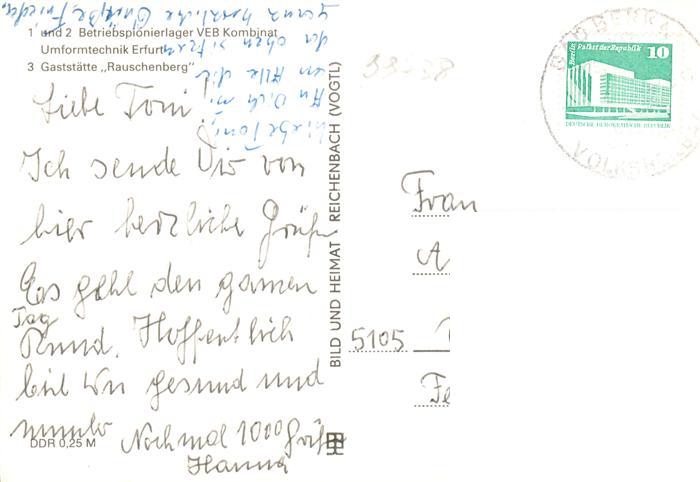 1 und 2 Betriebspionierlager VEB Kombinat
Umformtechnik Erfurt
3 Gaststätte „Rauschenberg"
Liebe Toni
Ich sende Dir von
hier herzliche Grüße
Es geht den ganzen
Tag
Rund. Hoffentlich
bist Du gesund und
munter
Nochmal 1000 Grüße
Hanna
DDR 0,25 M
Liebe Toni,
An Dich
an Alle die
da oben sitzen
ganz herzliche Grüße Frieda
BILD UND HEIMAT REICHENBACH (VOGTL)
Berlin Palast der Republik
10
DEUTSCHE DEMOKRATISCHE REPUBLIK
Frau
A
5105
Fe